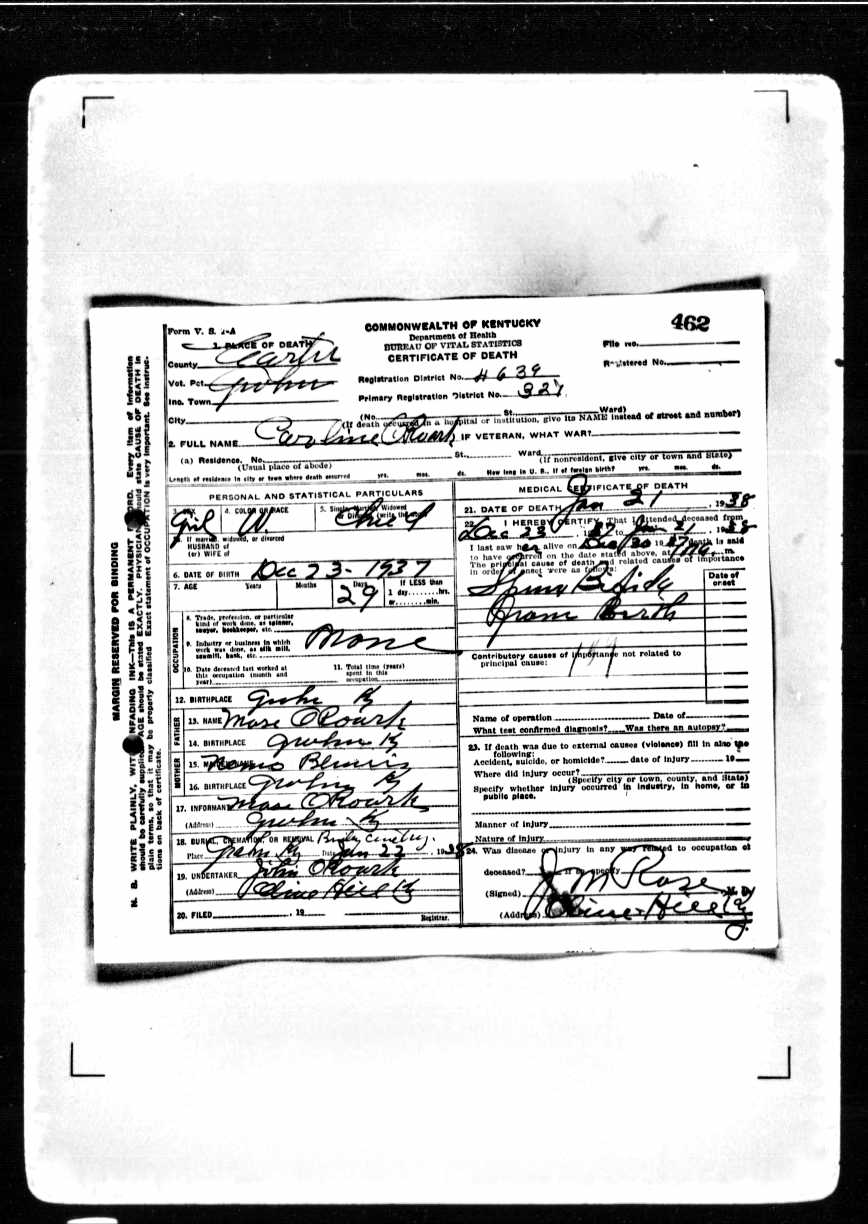 462
Form V. S. 1-A
COMMONWEALTH OF KENTUCKY
Department of Health
BUREAU OF VITAL STATISTICS
CERTIFICATE OF DEATH
1. PLACE OF DEATH
County Carter
Vot. Pct. Grahn
Inc. Town
City
File No.
Registered No.
Registration District No. 4639
Primary Registration District No. 327
(No. St. Ward)
(If death occurred in a hospital or institution, give its NAME instead of street and number)
2. FULL NAME Caroline O'Roark IF VETERAN, WHAT WAR?
(a) Residence. No. St., Ward
(Usual place of abode) (If nonresident, give city or town and State)
Length of residence in city or town where death occurred yrs. mos. ds. How long in U. S., if of foreign birth? yrs. mos. ds.
PERSONAL AND STATISTICAL PARTICULARS
3. SEX 4. COLOR OR RACE 5. Single, Married, Widowed or Divorced (write the word)
Girl W. Child
5a. If married, widowed, or divorced
HUSBAND of
(or) WIFE of
6. DATE OF BIRTH Dec 23 - 1937
7. AGE Years Months Days If LESS than
29 1 day hrs.
or min.
OCCUPATION
8. Trade, profession, or particular
kind of work done, as spinner,
sawyer, bookkeeper, etc.
9. Industry or business in which
work was done, as silk mill,
sawmill, bank, etc. None
10. Date deceased last worked at
this occupation (month and
year)
11. Total time (years)
spent in this
occupation
12. BIRTHPLACE Grahn Ky
FATHER
13. NAME Mose O'Roark
14. BIRTHPLACE Grahn Ky
MOTHER
15. MAIDEN NAME
16. BIRTHPLACE Grahn Ky
17. INFORMANT Mose O'Roark
(Address) Grahn Ky
18. BURIAL, CREMATION, OR REMOVAL
Place Grahn Ky Date Jan 22, 1938
19. UNDERTAKER John O'Roark
(Address) Olive Hill Ky
20. FILED , 19 Registrar.
MEDICAL CERTIFICATE OF DEATH
21. DATE OF DEATH Jan 21, 1938
22. I HEREBY CERTIFY, That I attended deceased from
Dec 23, 1937 to Jan 21, 1938
I last saw her alive on Dec 30 1937 death is said
to have occurred on the date stated above, at m.
The principal cause of death and related causes of importance
in order of onset were as follows:
Date of
onset
Spina Bifida
from Birth
Contributory causes of importance not related to
principal cause:
Name of operation Date of
What test confirmed diagnosis? Was there an autopsy?
23. If death was due to external causes (violence) fill in also the
following:
Accident, suicide, or homicide? date of injury 19
Where did injury occur?
(Specify city or town, county, and State)
Specify whether injury occurred in industry, in home, or in
public place.
Manner of injury
Nature of injury
24. Was disease or injury in any way related to occupation of
deceased? If so, specify
(Signed) J M Rose M. D.
(Address) Olive Hill Ky
MARGIN RESERVED FOR BINDING
N. B. WRITE PLAINLY, WITH UNFADING INK—THIS IS A PERMANENT RECORD. Every item of information
should be carefully supplied. AGE should be stated EXACTLY. PHYSICIANS should state CAUSE OF DEATH in
plain terms, so that it may be properly classified. Exact statement of OCCUPATION is very important. See instruc-
tions on back of certificate.